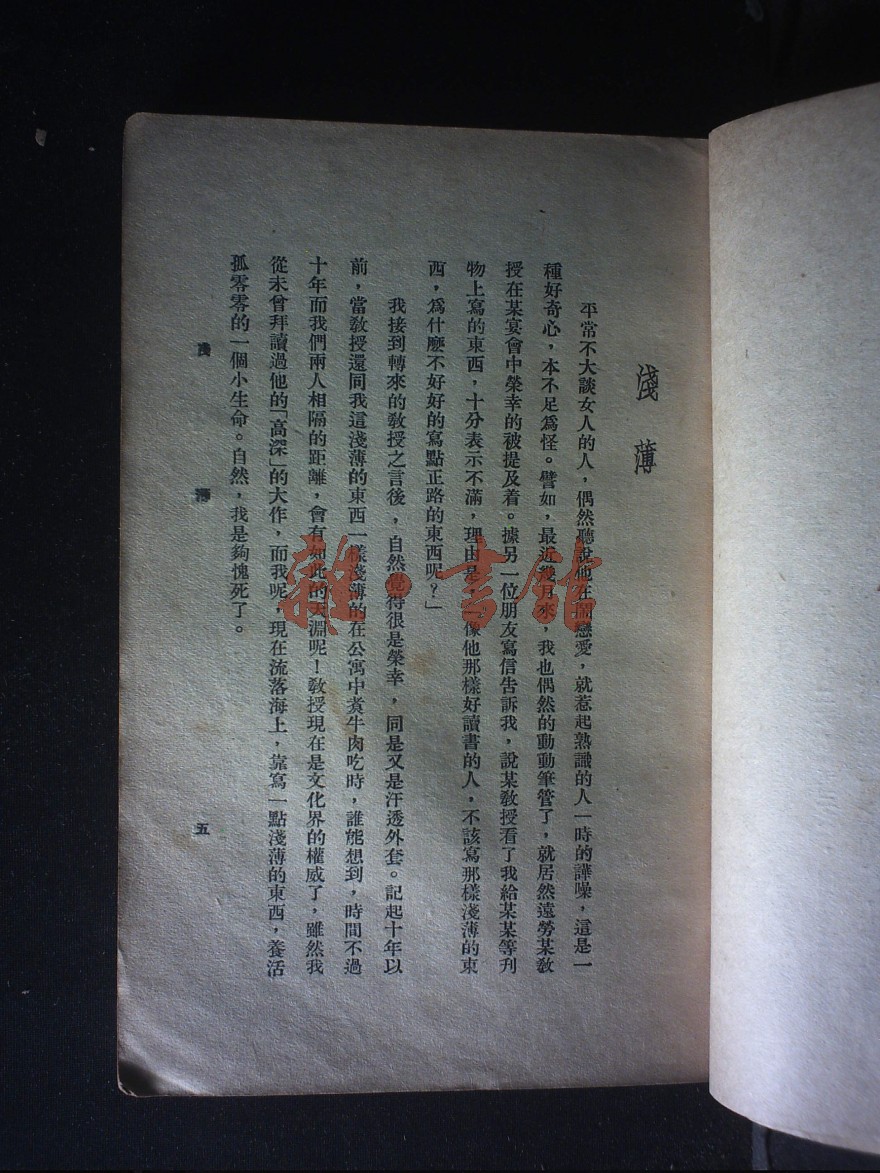 淺薄
平常不大談女人的人，偶然聽說他在鬧戀愛，就惹起熟識的人一時的譁噪，這是一
種好奇心，本不足爲怪。譬如，最近幾月來，我也偶然的動動筆管了，就居然遠勞某教
授在某宴會中榮幸的被提及着。據另一位朋友寫信告訴我，說某教授看了我給某某等刋
物上寫的東西，十分表示不滿，理由是：「像他那樣好讀書的人，不該寫那樣淺薄的東
西，爲什麽不好好的寫點正路的東西呢？」
我接到轉來的教授之言後，自然覺得很是榮幸，同是又是汗透外套。記起十年以
前，當教授還同我這淺薄的東西一樣淺薄的在公寓中煑牛肉吃時，誰能想到，時間不過
十年而我們兩人相隔的距離，會有如此的天淵呢！教授現在是文化界的權威了，雖然我
從未曾拜讀過他的「高深」的大作，而我呢，現在流落海上，靠寫一點淺薄的東西，養活
孤零零的一個小生命。自然，我是夠愧死了。
淺薄 五
雜·書館